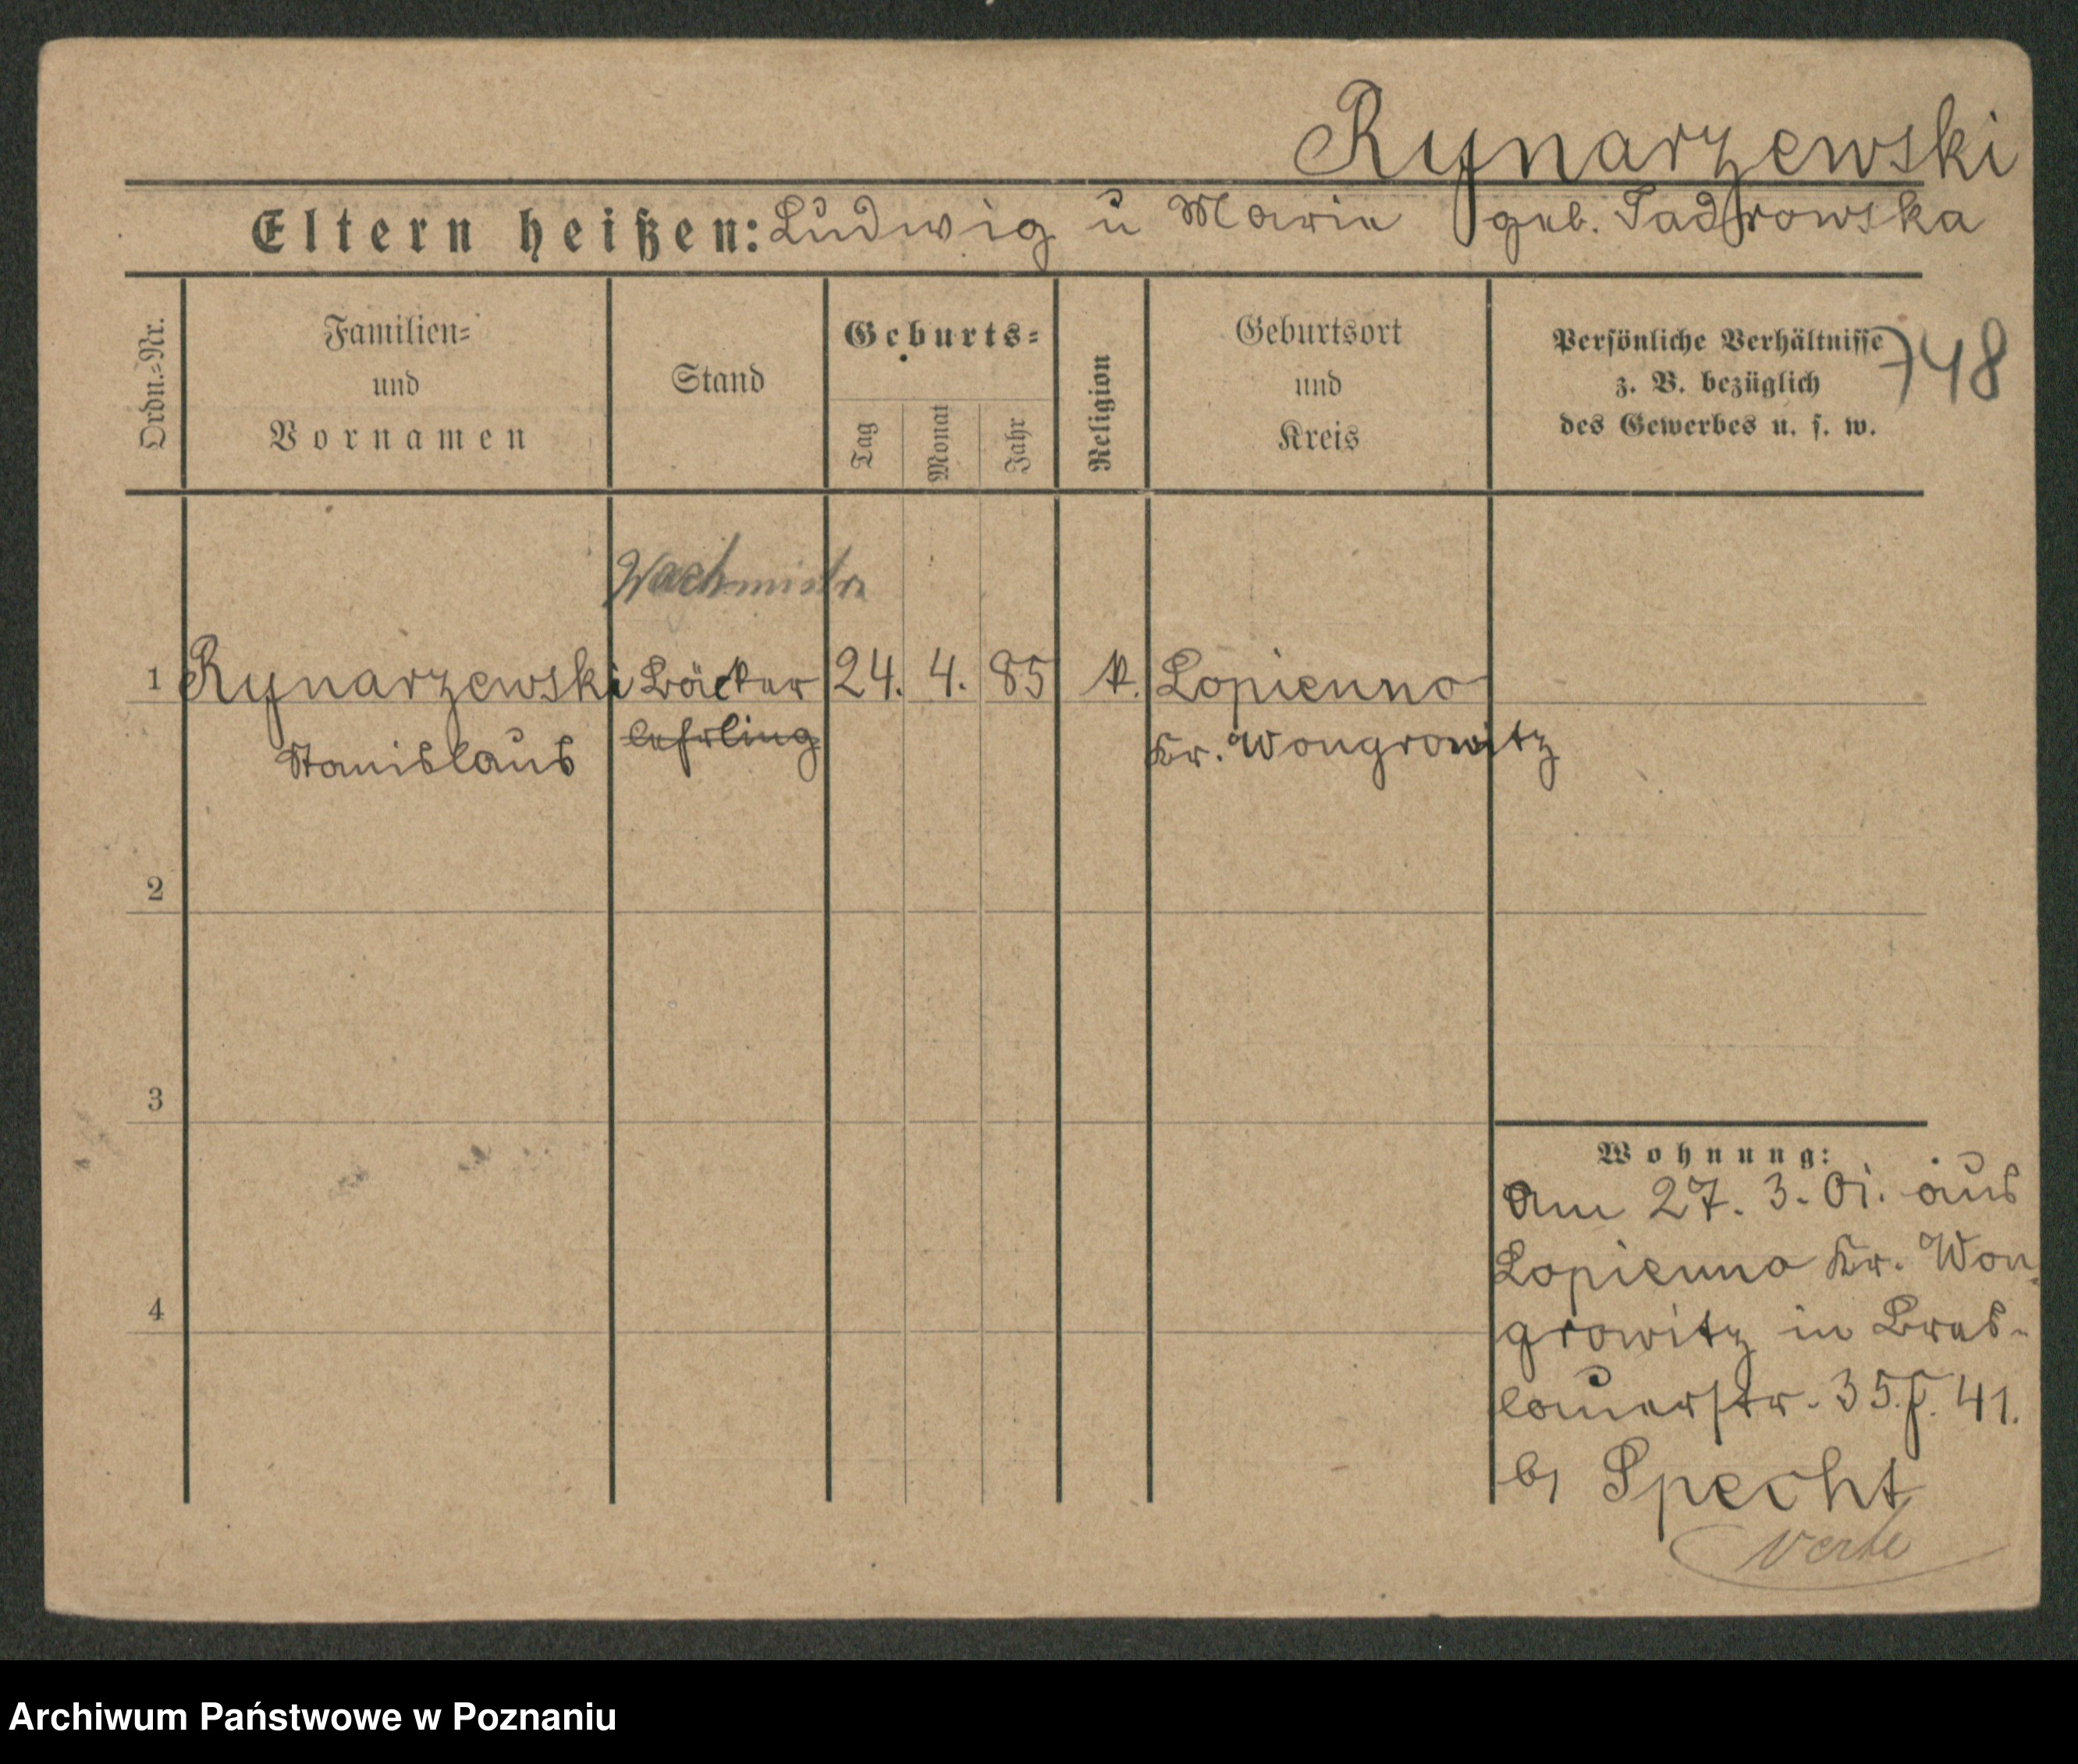 Rynarzewski
Eltern heißen: Ludwig u Marie geb.
Ordn.-Nr.
Familien-
und
Vornamen
Stand
Geburts-
Tag
Monat
Jahr
Religion
Geburtsort
und
Kreis
Persönliche Verhältnisse
z. B. bezüglich
des Gewerbes u. s. w.
748
Wachmistrz
1 Rynarzewski Bäcker 24. 4. 85 k. Lopienno
Stanislaus lehrling Kr. Wongrowitz
2
3
4
Wohnung:
Am 27. 3. 01. aus
Lopienno Kr. Won-
growitz in Bres-
lauerstr. 35. 41.
b/ Specht
verte
Archiwum Państwowe w Poznaniu